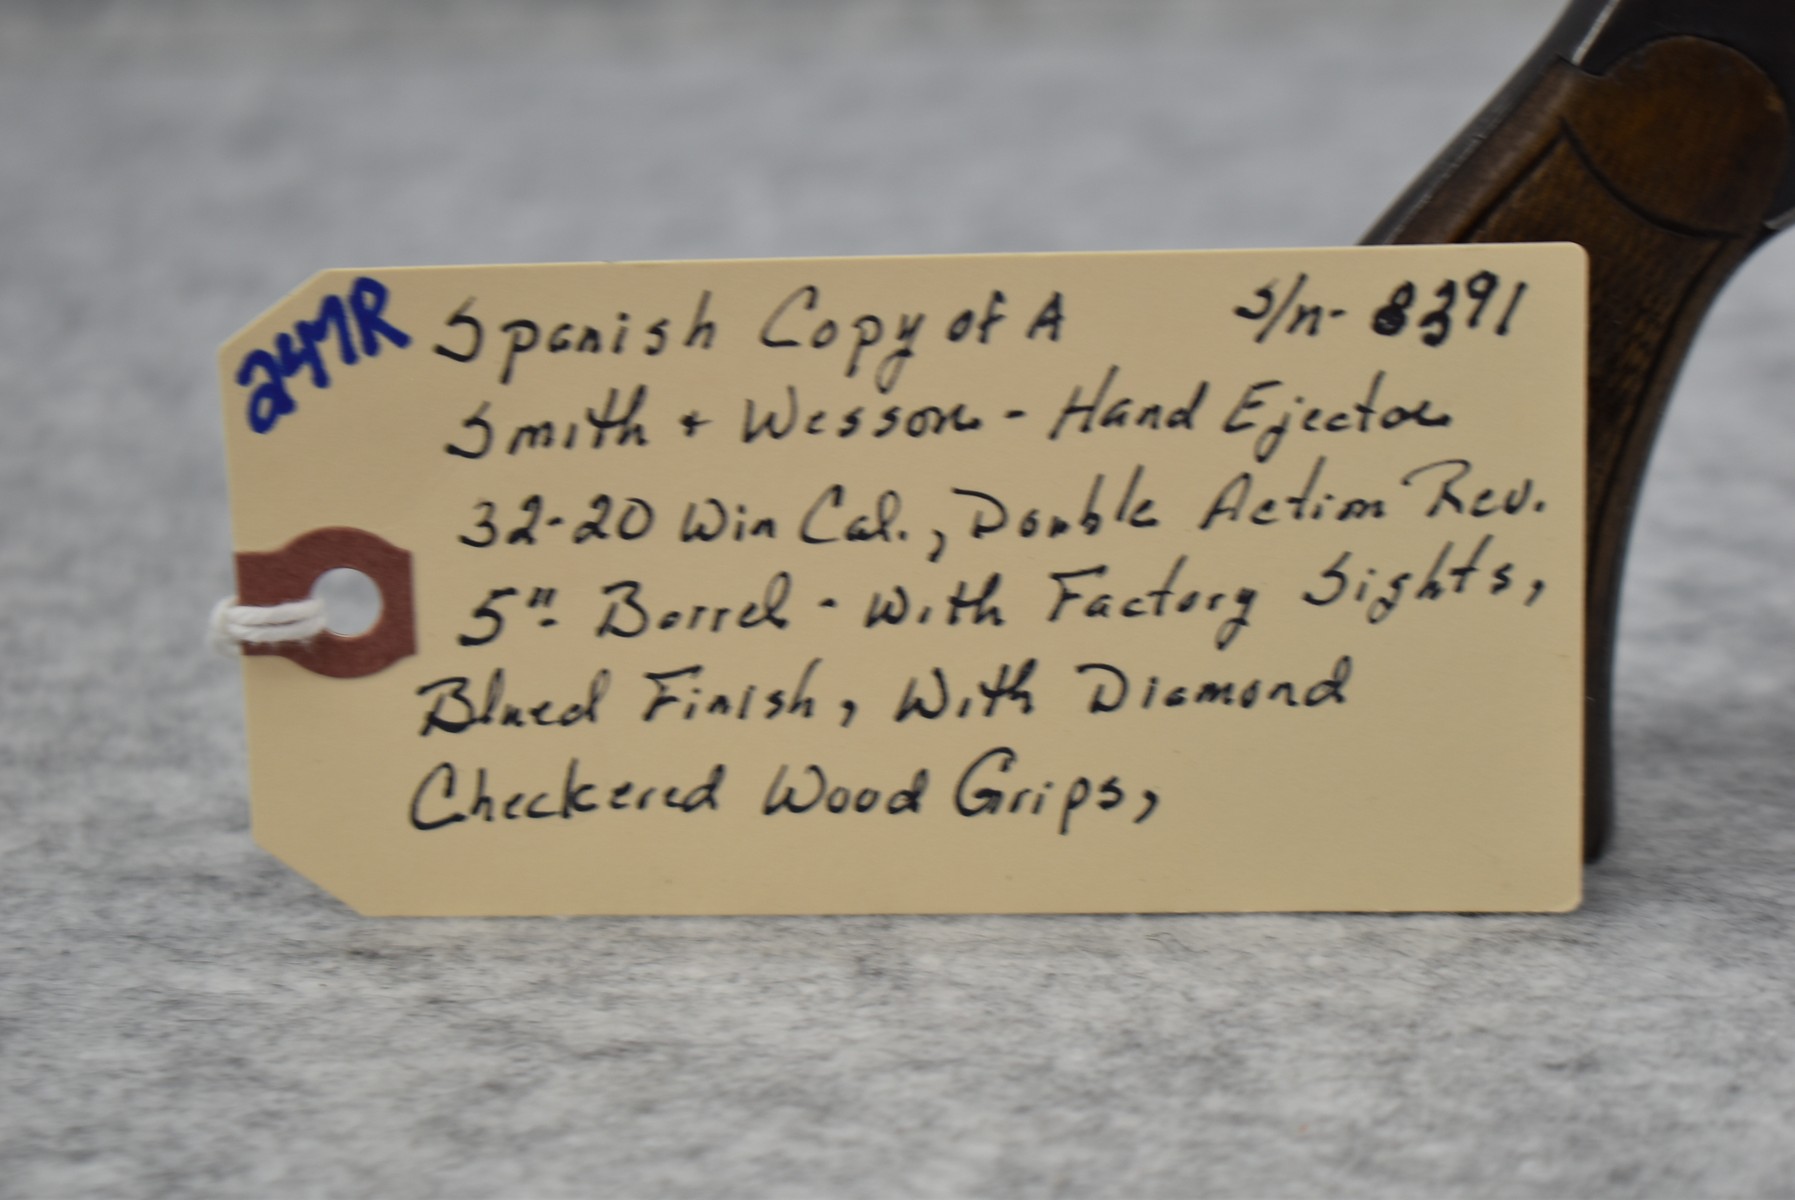 24MR
Spanish Copy of A s/n- 8391
Smith + Wesson - Hand Ejector
32-20 Win Cal., Double Action Rev.
5" Barrel - With Factory Sights,
Blued Finish, With Diamond
Checkered Wood Grips,